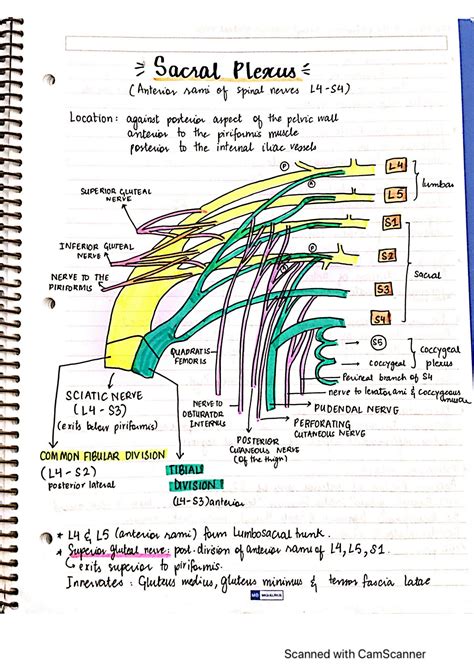 Sacral Plexus
(Anterior rami of spinal nerves L4-S4)
Location: against posterior aspect of the pelvic wall
anterior to the piriformis muscle
posterior to the internal iliac vessels
P
A
P
A
L4
L5
lumbar
SUPERIOR GLUTEAL
NERVE
S1
INFERIOR GLUTEAL
NERVE
S2
sacral
NERVE TO THE
PIRIFORMIS
S3
S4
QUADRATIS
FEMORIS
S5
coccygeal
coccygeal
plexus
Perineal branch of S4
nerve to levator ani & coccygeous
muscle
SCIATIC NERVE
(L4-S3)
(exits below piriformis)
NERVE TO
OBTURATOR
INTERNUS
PUDENDAL NERVE
PERFORATING
CUTANEOUS NERVE
POSTERIOR
CUTANEOUS NERVE
(Of the thigm)
COMMON FIBULAR DIVISION
(L4-S2)
posterior lateral
TIBIAL
DIVISION
(L4-S3) anterior
* L4 & L5 (anterior rami) form lumbosacral trunk.
* Superior gluteal nerve: post. division of anterior rami of L4, L5, S1.
exits superior to piriformis.
Innervates: Gluteus medius, gluteus minimus & tensor fascia latae
Scanned with CamScanner